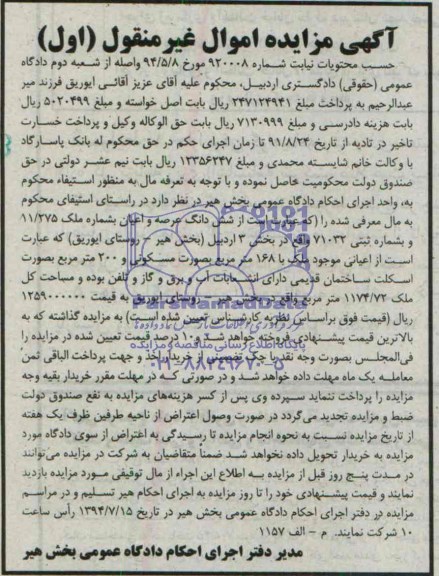 آگهی مزایده اموال غیرمنقول (اول)
حسب محتویات نیابت شماره ۹۲۰۰۰۸ مورخ ۹۴/۵/۸ واصله از شعبه دوم دادگاه
عمومی (حقوقی) دادگستری اردبیل، محکوم علیه آقای عزیز آقائی ایوریق فرزند میر
عبدالرحیم به پرداخت مبلغ ۲۴۷۱۲۴۹۴۱ ریال بابت اصل خواسته و مبلغ ۵۰۲۰۴۹۹ ریال
بابت هزینه دادرسی و مبلغ ۷۱۳۰۹۹۹ ریال بابت حق الوکاله وکیل و پرداخت خسارت
تاخیر در تادیه از تاریخ ۹۱/۸/۲۴ تا زمان اجرای حکم در حق محکوم له بانک پاسارگاد
با وکالت خانم شایسته محمدی و مبلغ ۱۲۳۵۶۲۴۷ ریال بابت نیم عشر دولتی در حق
صندوق دولت محکومیت حاصل نموده و با توجه به تعرفه مال به منظور استیفاء محکوم
به، واحد اجرای احکام دادگاه عمومی بخش هیر در نظر دارد در راستای استیفای محکوم
به مال معرفی شده را (که عبارت است از شش دانگ عرصه و اعیان بشماره ملک ۱۱/۲۷۵
و بشماره ثبتی ۷۱۰۳۲ واقع در بخش ۳ اردبیل (بخش هیر - روستای ایوریق) که عبارت
است از اعیانی موجود ملک با ۱۶۸ متر مربع بصورت مسکونی و ۲۰۰ متر مربع بصورت
اسکلت ساختمان قدیمی دارای انشعابات آب و برق و گاز و تلفن بوده و مساحت کل
ملک ۱۱۷۴/۷۲ متر مربع واقع در بخش هیر - روستای ایوریق به قیمت ۱۲۵۹۰۰۰۰۰۰
ریال (قیمت فوق براساس نظریه کارشناس تعیین شده است) به مزایده گذاشته که به
بالاترین قیمت پیشنهادی فروخته خواهد شد و ۱۰ درصد قیمت تعیین شده در مزایده را
فی‌المجلس بصورت وجه نقد یا چک تضمینی از خریدار اخذ و جهت پرداخت الباقی ثمن
معامله یک ماه مهلت داده خواهد شد و در صورتی که در مهلت مقرر خریدار بقیه وجه
مزایده را پرداخت ننماید سپرده وی پس از کسر هزینه‌های مزایده به نفع صندوق دولت
ضبط و مزایده تجدید می‌گردد در صورت وصول اعتراض از ناحیه طرفین ظرف یک هفته
از تاریخ مزایده نسبت به نحوه انجام مزایده تا رسیدگی به اعتراض از سوی دادگاه مورد
مزایده به خریدار تحویل داده نخواهد شد ضمناً متقاضیان به شرکت در مزایده می‌توانند
در مدت پنج روز قبل از مزایده به اطلاع این اجراء از مال توقیفی مورد مزایده بازدید
نمایند و قیمت پیشنهادی خود را تا روز مزایده به اجرای احکام هیر تسلیم و در مراسم
مزایده در دفتر اجرای احکام دادگاه عمومی بخش هیر در تاریخ ۱۳۹۴/۷/۱۵ رأس ساعت
۱۰ شرکت نمایند. م - الف ۱۱۵۷
مدیر دفتر اجرای احکام دادگاه عمومی بخش هیر